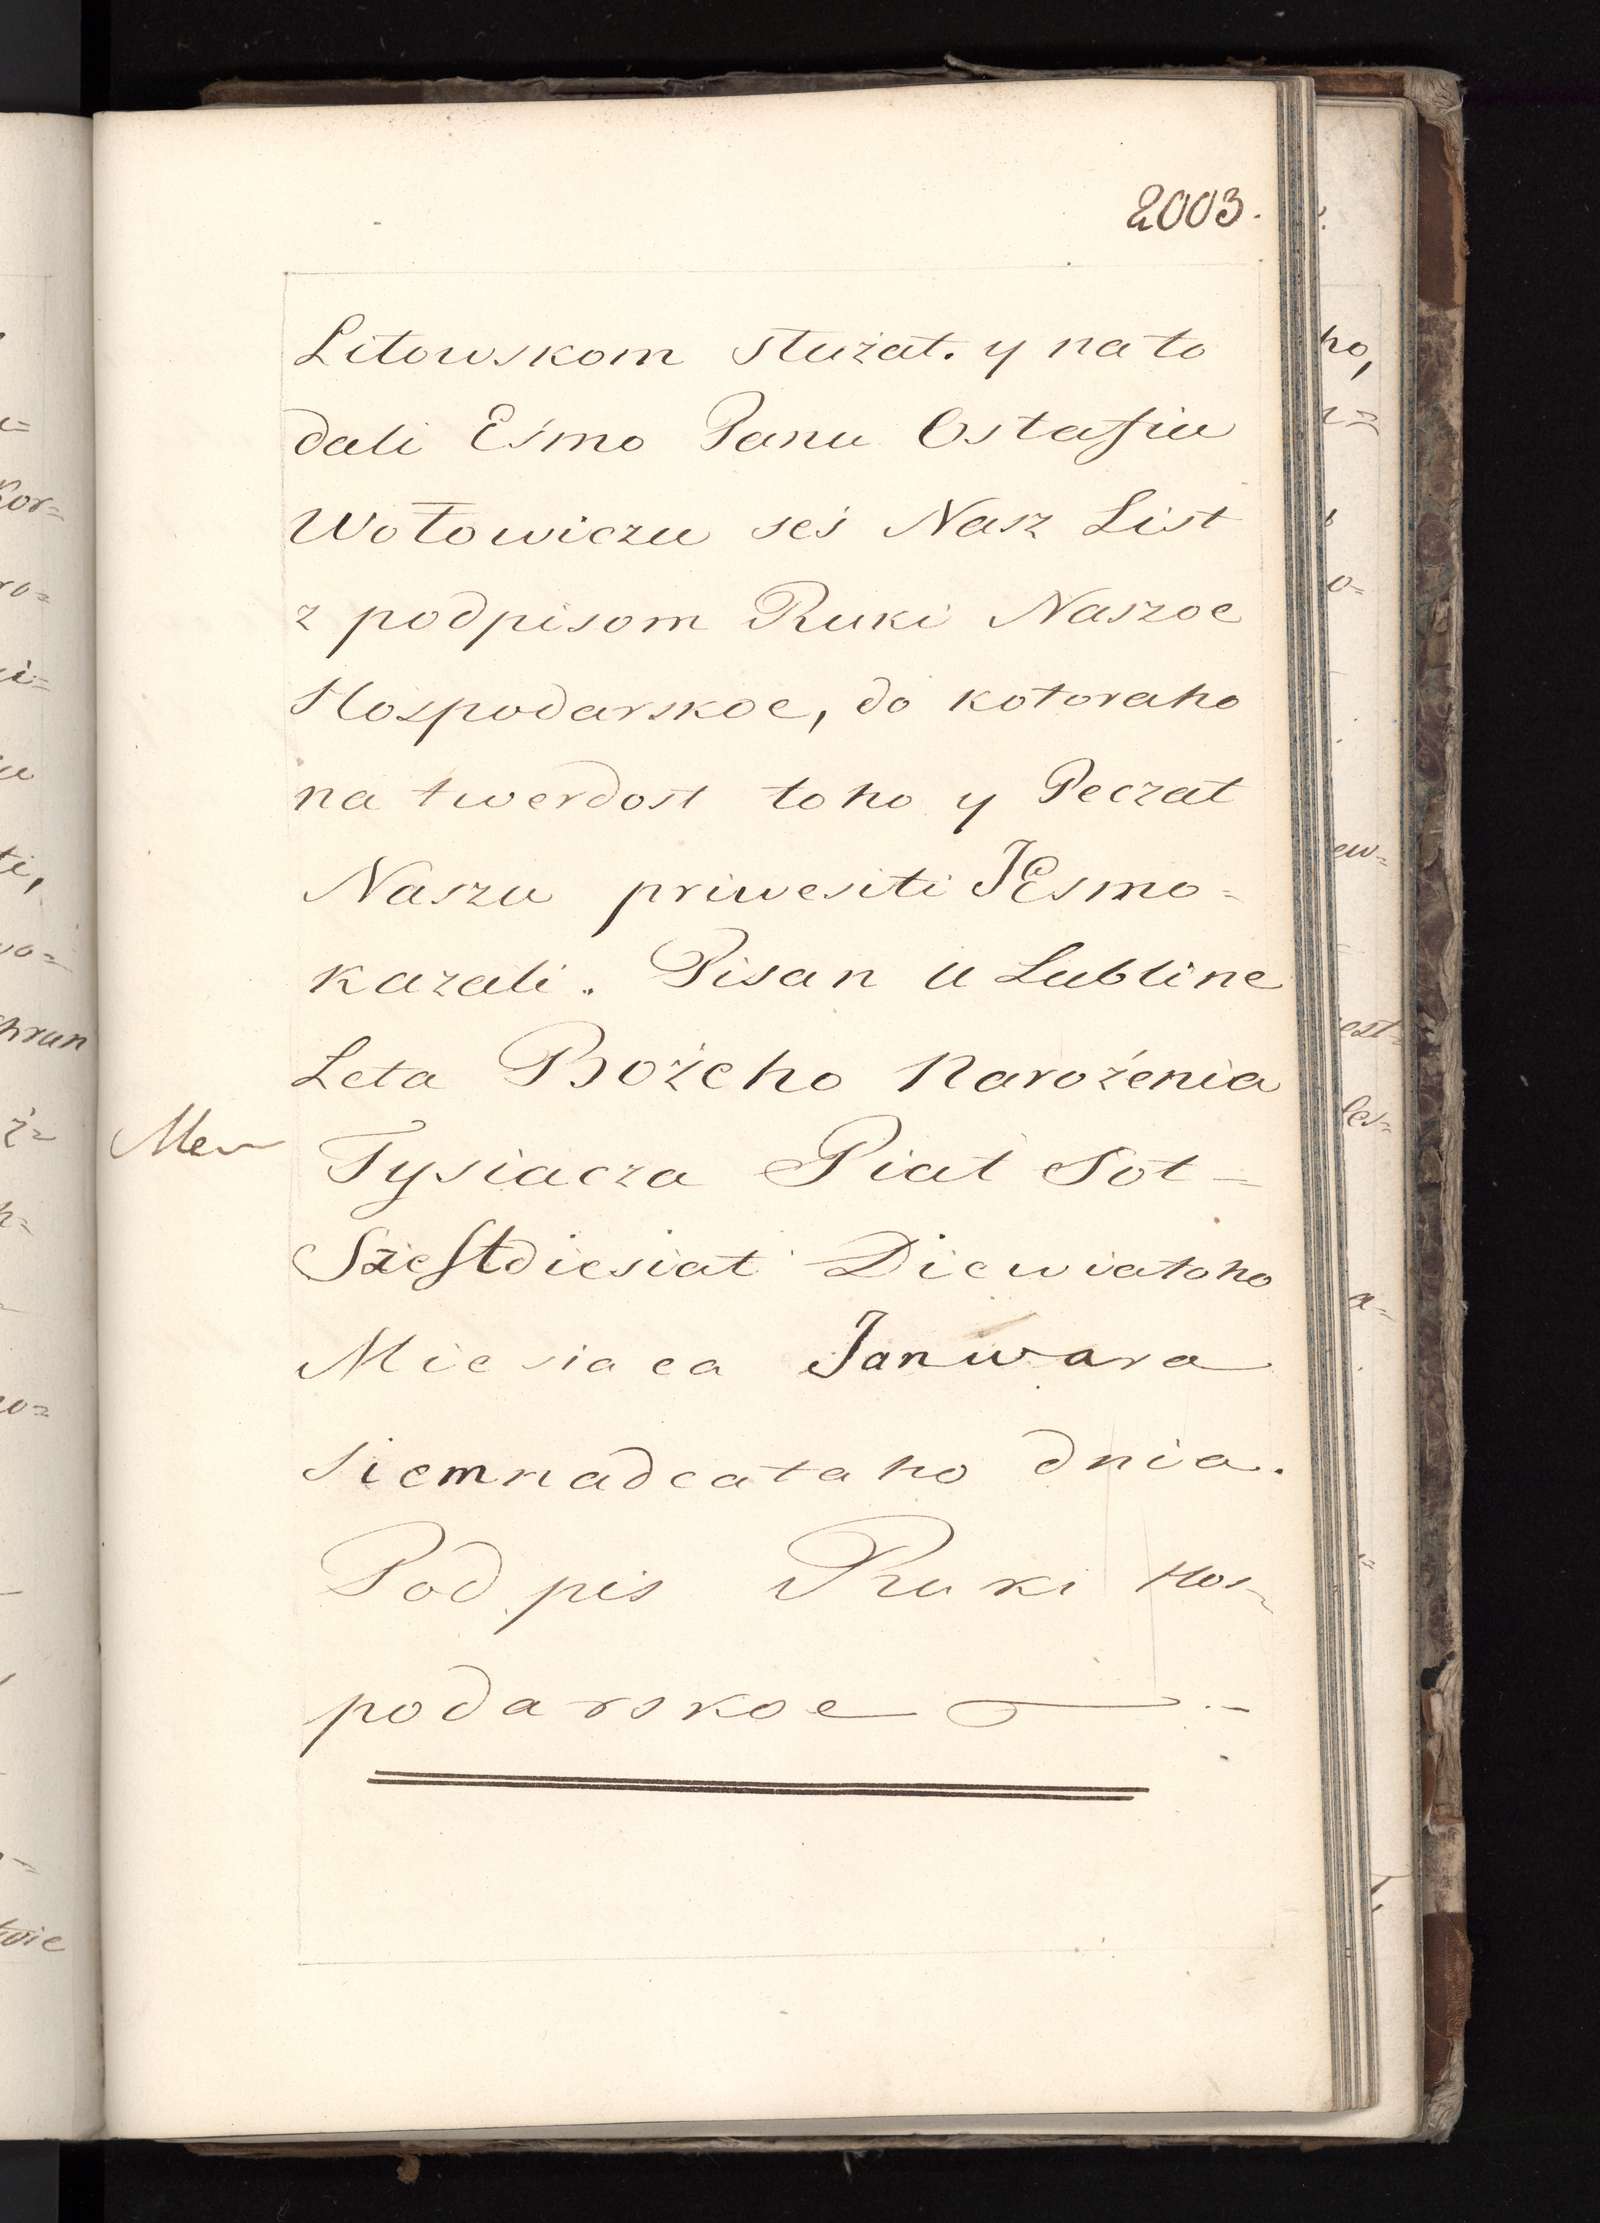 2003.
Litowskom służat. y na to
dali Eśmo Panu Ostafiu
Wołowiczu seś Nasz List
z podpisom Ruki Naszoe
Hospodarskoe, do kotoraho
na twerdost toho y Peczat
Naszu priwesiti JEsmo-
kazali. Pisan u Lubline
Leta Bożeho Narożenia
Tysiacza Piat Sot-
Szestdiesiat Diewiatoho
Miesiaca Janwara
siemnadcataho dnia.
Podpis Ruki Hos-
podarskoe